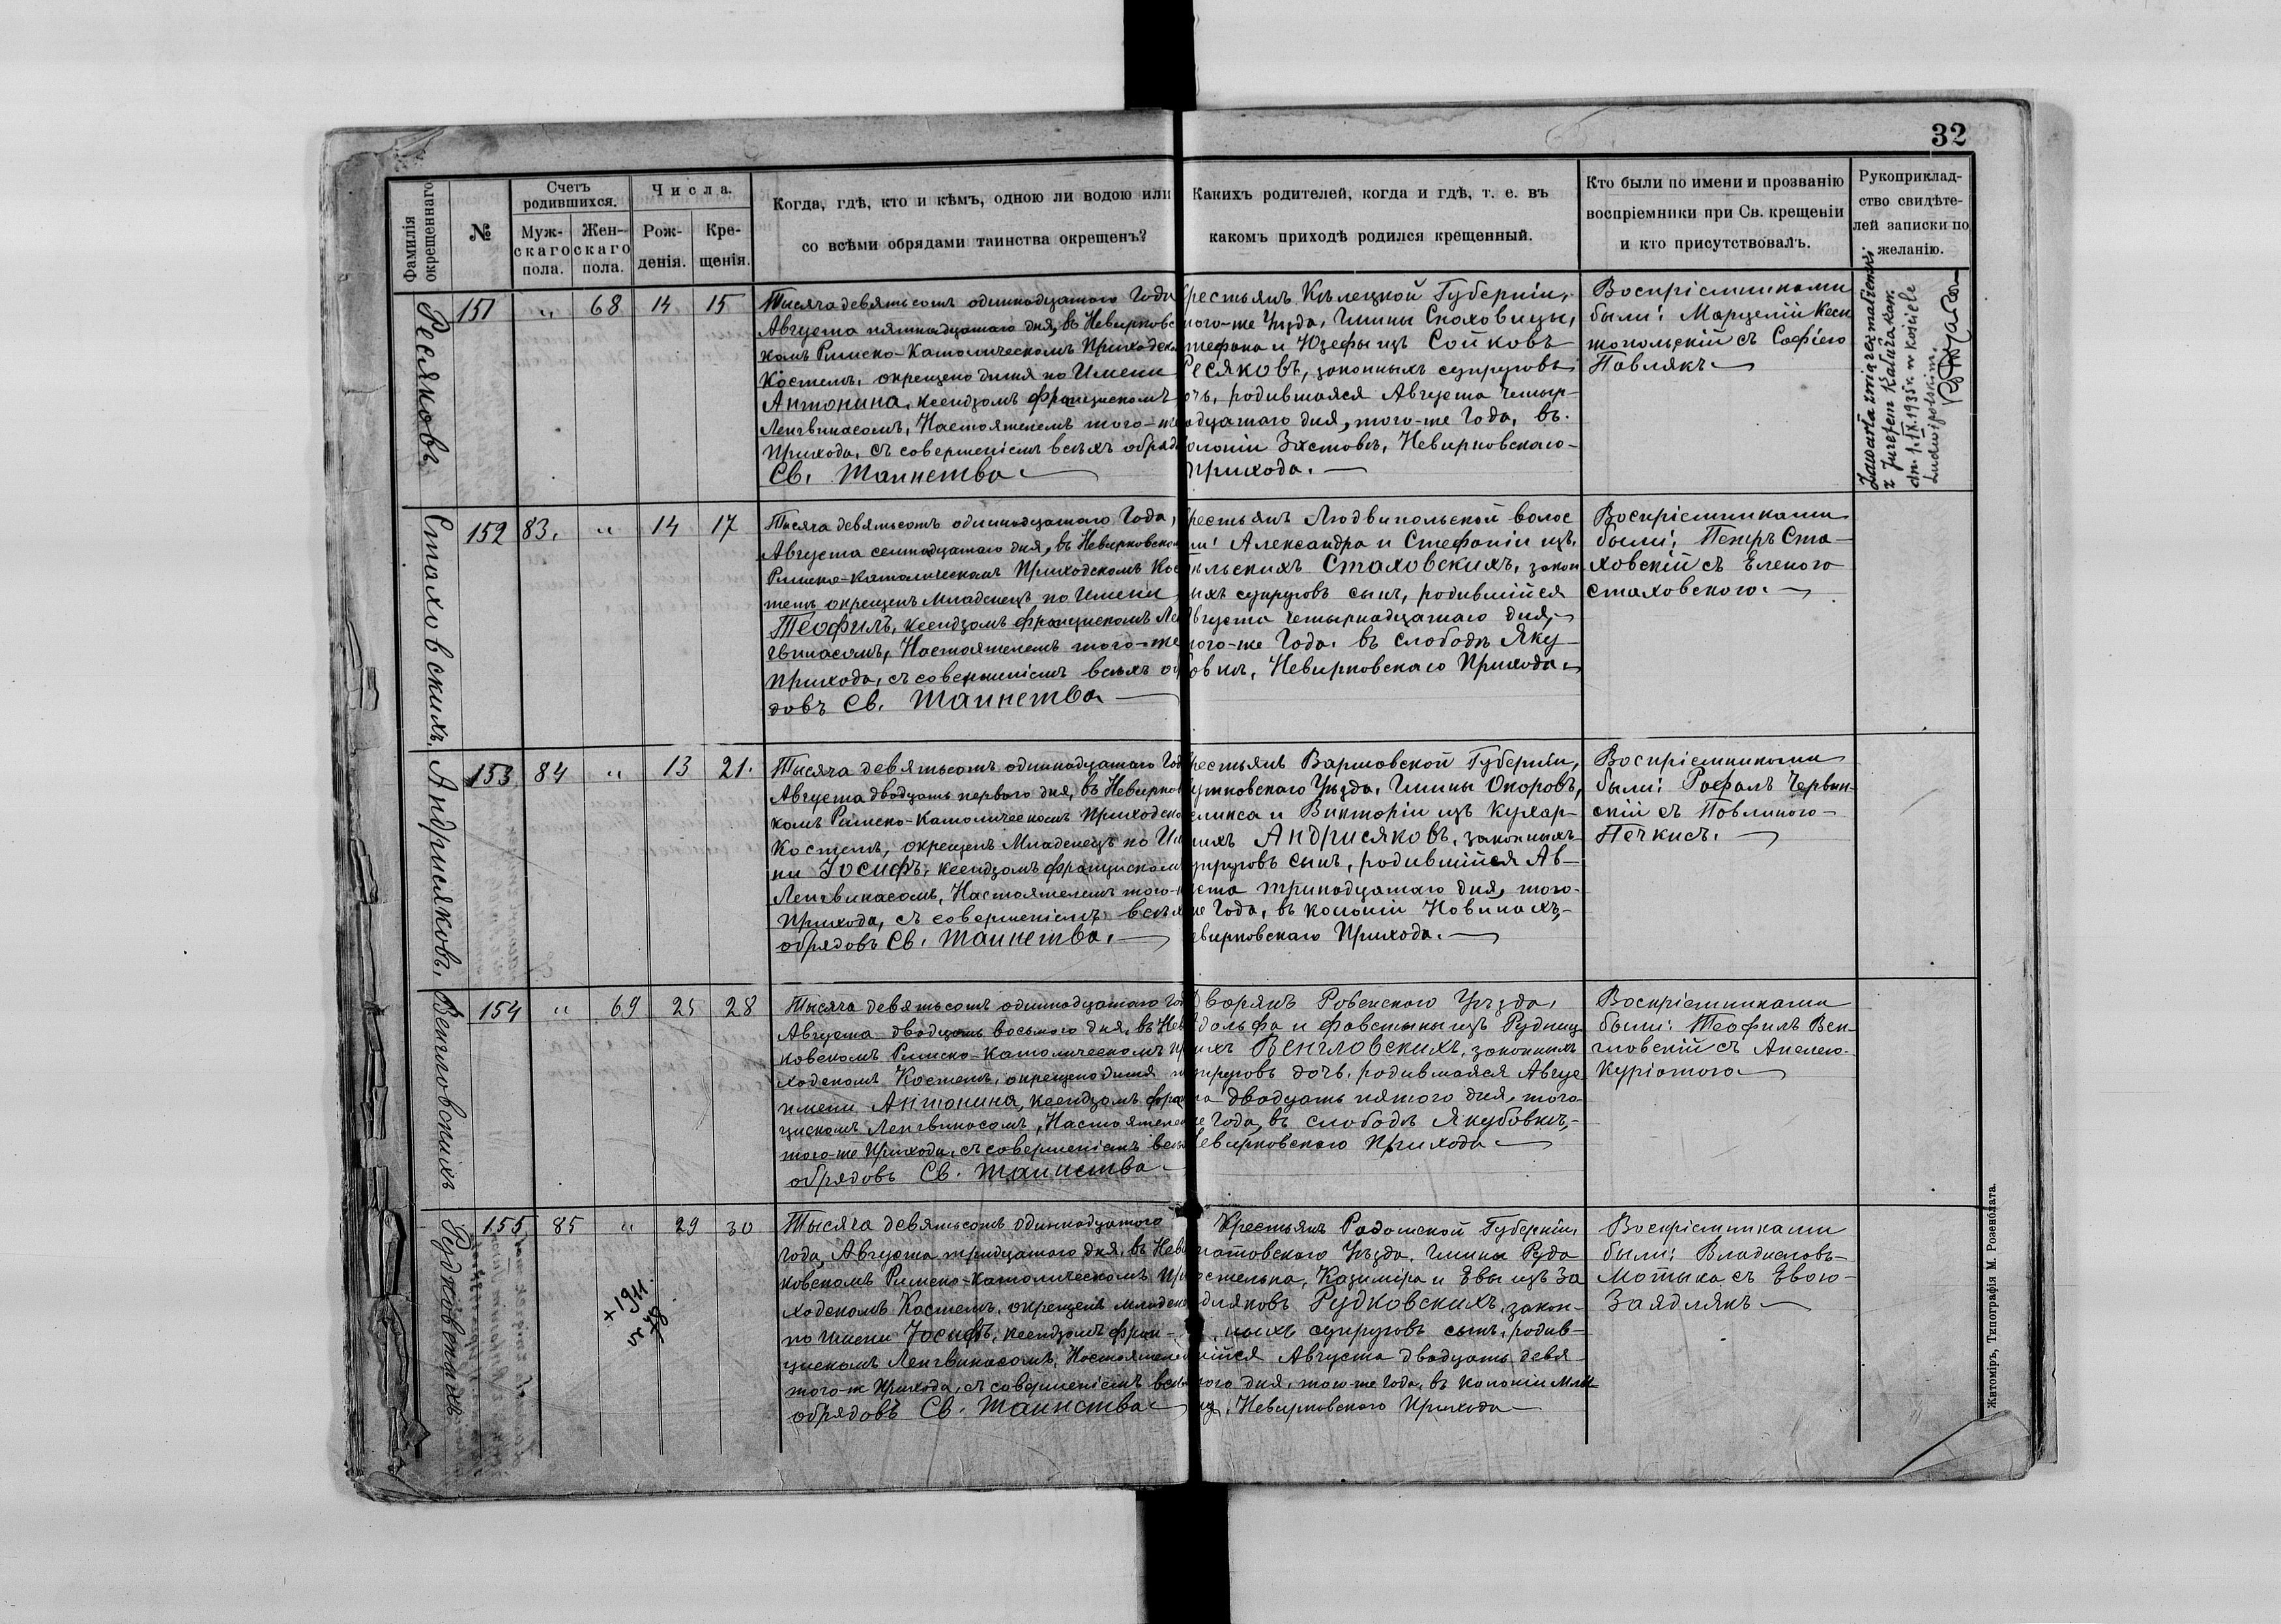 32
Фамилія окрещеннаго
№
Счетъ родившихся.
Мужскаго пола.
Женскаго пола.
Числа.
Рожденія.
Крещенія.
Когда, гдѣ, кто и кѣмъ, одною ли водою или
со всѣми обрядами таинства окрещенъ?
Какихъ родителей, когда и гдѣ, т. е. въ
какомъ приходѣ родился крещенный.
Кто были по имени и прозванію
воспріемники при Св. крещеніи
и кто присутствовалъ.
Рукоприклад-
ство свидѣте-
лей записки по
желанію.
Ресяковъ
151 " 68 14 15
Тысяча девятьсотъ одиннадцатаго Года
Августа пятнадцатаго дня, въ Невирковс
комъ Римско-Католическомъ Приходско
Костелѣ, окрещено дитя по Имени
Антонина, ксендзомъ Францискомъ
Ленгвинасомъ, Настоятелемъ того-же
Прихода, съ совершеніемъ всѣхъ обрядо
Св. Таинства
рестьянъ Кѣлецкой Губерніи,
того-же Уѣзда, Гмины
тефана и Юзефы изъ Сойковъ
Ресяковъ, законныхъ супруговъ
очь, родившаяся Августа четыр-
адцатаго дня, того-же Года, въ
олоніи Заставѣ, Невирковскаго
Прихода.
Воспріемниками
были: Марцелій Кеси
топольскій съ Софіею
Павлякъ
Zawarła zwiąrzq małżeński
z Józefem Kałużakam.
dn. 1.IX.1935 r. w kościele
Ludwipolskim.
Стаховскихъ.
152 83. " 14 17
Тысяча девятьсотъ одиннадцатаго Года,
Августа семнадцатаго дня, въ Невирковском
Римско-Католическомъ Приходскомъ Кос
телѣ окрещенъ Младенецъ по Имени
Теофилъ, ксендзомъ Францискомъ Лен
гвинасомъ, Настоятелемъ того-же
Прихода, съ совершеніемъ всѣхъ об
довъ Св. Таинства
рестьянъ Людвипольской волос
ти: Александра и Стефаніи изъ
льскихъ Стаховскихъ, закон
ыхъ супруговъ сынъ, родившійся
Августа четырнадцатаго дня,
того-же Года, въ слободѣ Яку-
бовкѣ, Невирковскаго Прихода
Воспріемниками
были: Петръ Ста-
ховскій съ Еленою
Стаховскою.
Андрисяковъ.
153 84 " 13 21.
Тысяча девятьсотъ одиннадцатаго Год
Августа двадцать перваго дня, въ Невирков
комъ Римско-Католическомъ Приходско
Костелѣ, окрещенъ Младенецъ по Им
ни Іосифъ, ксендзомъ Францискомъ
Ленгвинасомъ, Настоятелемъ того-ж
Прихода, съ совершеніемъ всѣх
обрядовъ Св. Таинства.
рестьянъ Варшовской Губерніи,
утновскаго Уѣзда, Гмины Опоровъ,
еликса и Викторіи изъ Кухар-
ихъ Андрисяковъ, законныхъ
упруговъ сынъ, родившійся Ав-
уста тринадцатаго дня, того-
же Года, въ колоніи Новинахъ,
евирковскаго Прихода.
Воспріемниками
были: Рафалъ Червин-
скій съ Павлиною
Печкисъ.
Венгловскихъ
154 " 69 25 28
Тысяча девятьсотъ одиннадцатаго Го
Августа двадцать восьмого дня, въ Нев
ковскомъ Римско-Католическомъ При
ходскомъ Костелѣ, окрещено дитя п
имени Антонина, ксендзомъ Фра
цискомъ Ленгвинасомъ, Настоятеле
того-же Прихода, съ совершеніемъ всѣх
обрядовъ Св. Таинства
Дворянъ Ровенскаго Уѣзда,
дольфа и Фавстыны изъ Рудниц
ихъ Венгловскихъ, законныхъ
упруговъ дочь, родившаяся Авгус
та двадцать пятого дня, того
же Года, въ слободѣ Якубовкѣ,
Невирковскаго Прихода
Воспріемниками
были: Теофилъ Вен-
гловскій съ Анелею
Куріатою
Рудковскихъ
155 85 " 29 30
+ 1911.
Тысяча девятьсотъ одиннадцатаго
года, Августа тридцатаго дня, въ Неви
ковскомъ Римско-Католическомъ При
ходскомъ Костелѣ, окрещенъ младене
по имени Іосифъ, ксендзомъ Фран-
цискомъ Ленгвинасомъ, Настоятеле
того-ж Прихода, съ совершеніемъ всѣх
обрядовъ Св. Таинства
Крестьянъ Радомской Губерніи,
патовскаго Уѣзда, Гмины Руда
остельна, Казиміра и Евы изъ За
дляковъ Рудковскихъ, закон-
ныхъ супруговъ сынъ, родив-
шійся Августа двадцать девя-
того дня, того-же Года, въ колоніи
Невирковскаго Прихода
Воспріемниками
были: Владиславъ
Мотыка съ Евою
Заядлякъ
Житоміръ, Типографія М. Розенблата.